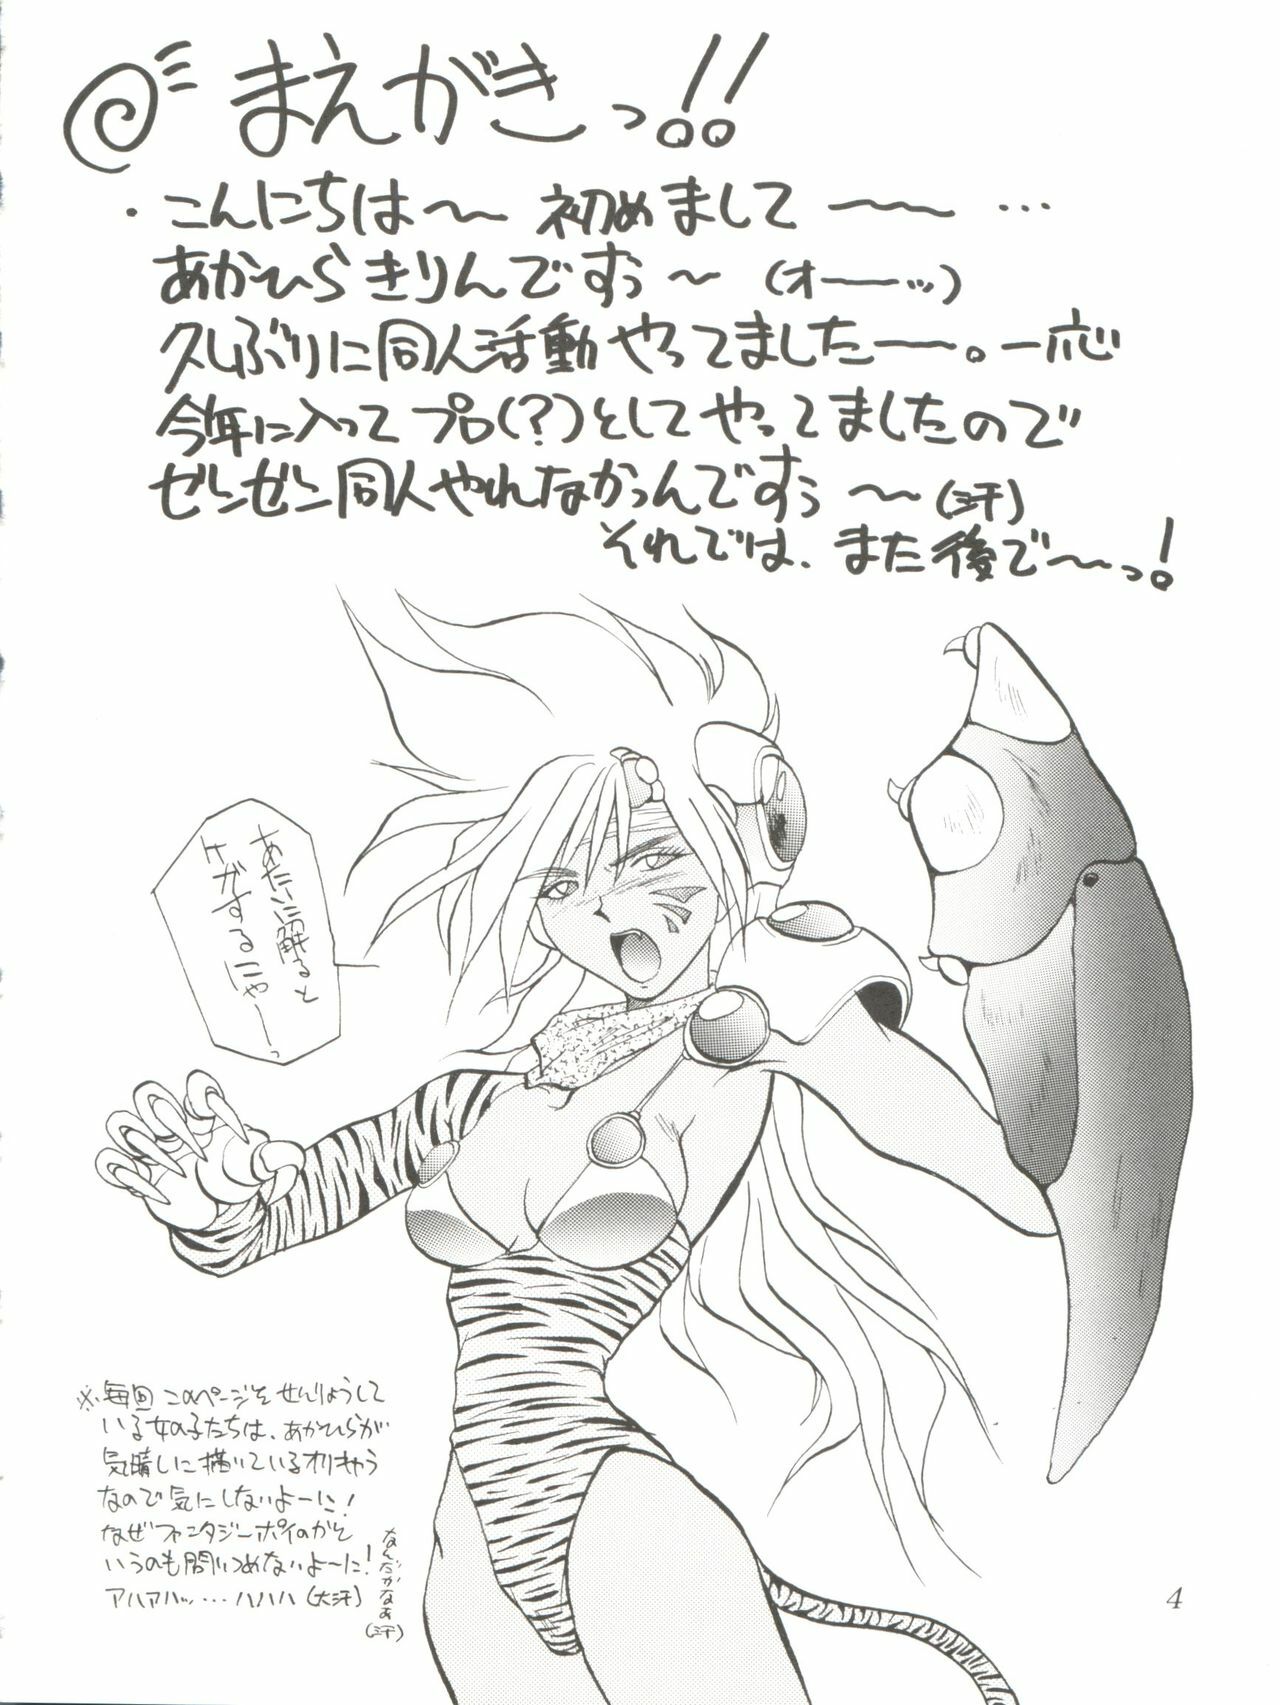 まえがきっ!!
・こんにちは～～ 初めまして ～～ …
あかひらきりんですぅ～ (オーーッ)
久しぶりに同人活動やってましたー。一応
今年に入ってプロ(？)としてやってましたので
ゼンゼン同人やれなかったんですぅ ～～(汗)
それでは、また後で～～っ!
あたいに触ると
ケガするにゃーっ
※毎回このページをせんりょうして
いる女の子たちは、あかひらが
気晴しに描いているオリキャラ
なので気にしないよーに!
なぜファンタジーポイのかと
いうのも問いつめないよ～に!
アハアハッ…ハハハ(大汗)
なんだかなぁ(汗)
4